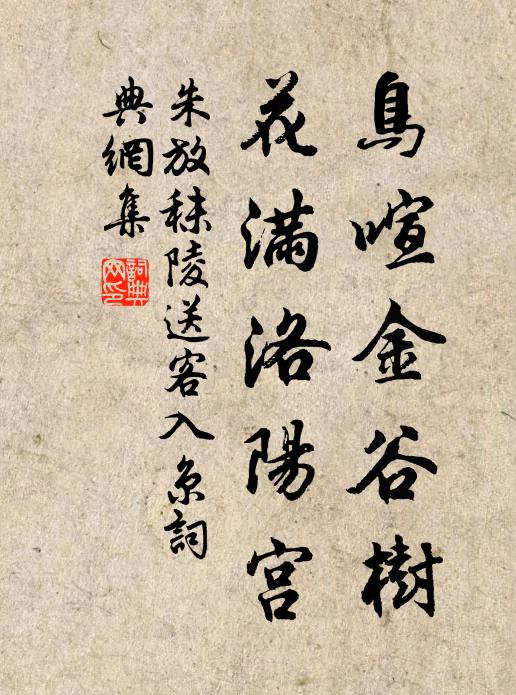 鳥喧金谷樹
花滿洛陽宮
朱放秣陵送客入京詞
典網集
詞典
网印